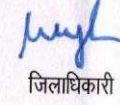 जिलाधिकारी